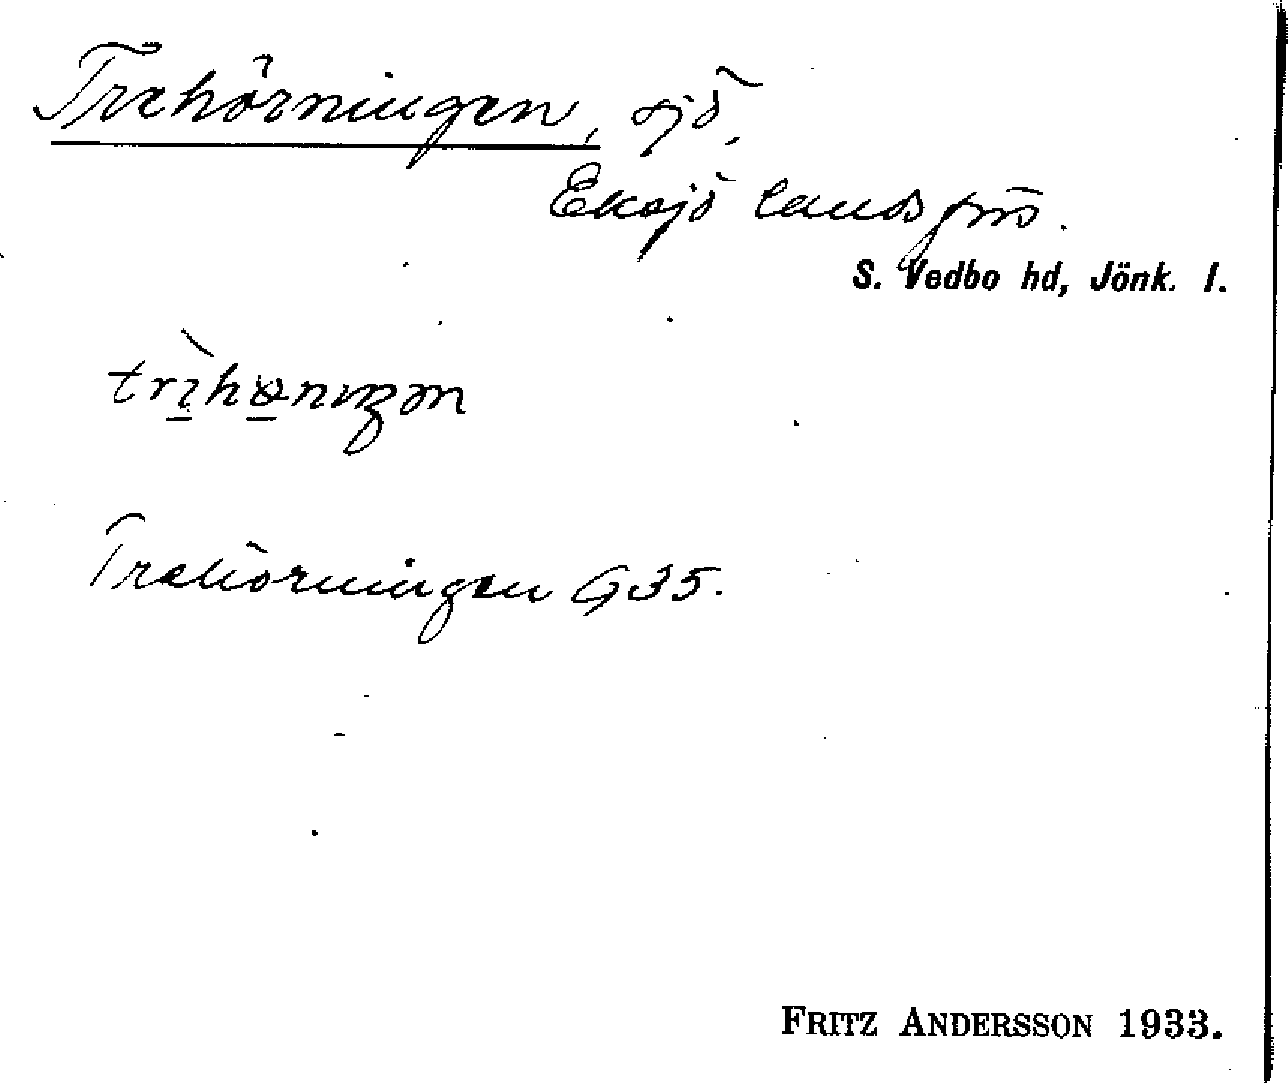 Trehörningen, sjö,
Eksjö landsförs.
S. Vedbo hd, Jönk. l.
Trehörningen G35.
FRITZ ANDERSSON 1933.